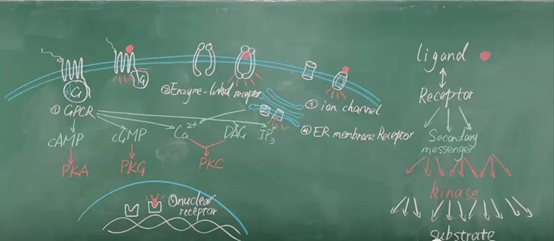 G
G
① GPCR
② Enzyme-linked receptor
③ ion channel
④ ER membrane Receptor
cAMP
cGMP
Ca²⁺
DAG
IP₃
PKA
PKG
PKC
nuclear
receptor
ligand
Receptor
Secondary
messenger
kinase
substrate